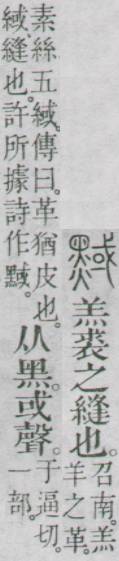 䵧羔裘之縫也。召南。羔
羊之革。
素絲五緎。傳曰。革猶皮也。
緎縫也。許所據詩作䵧。
从黑。或聲。于逼切。
一部。